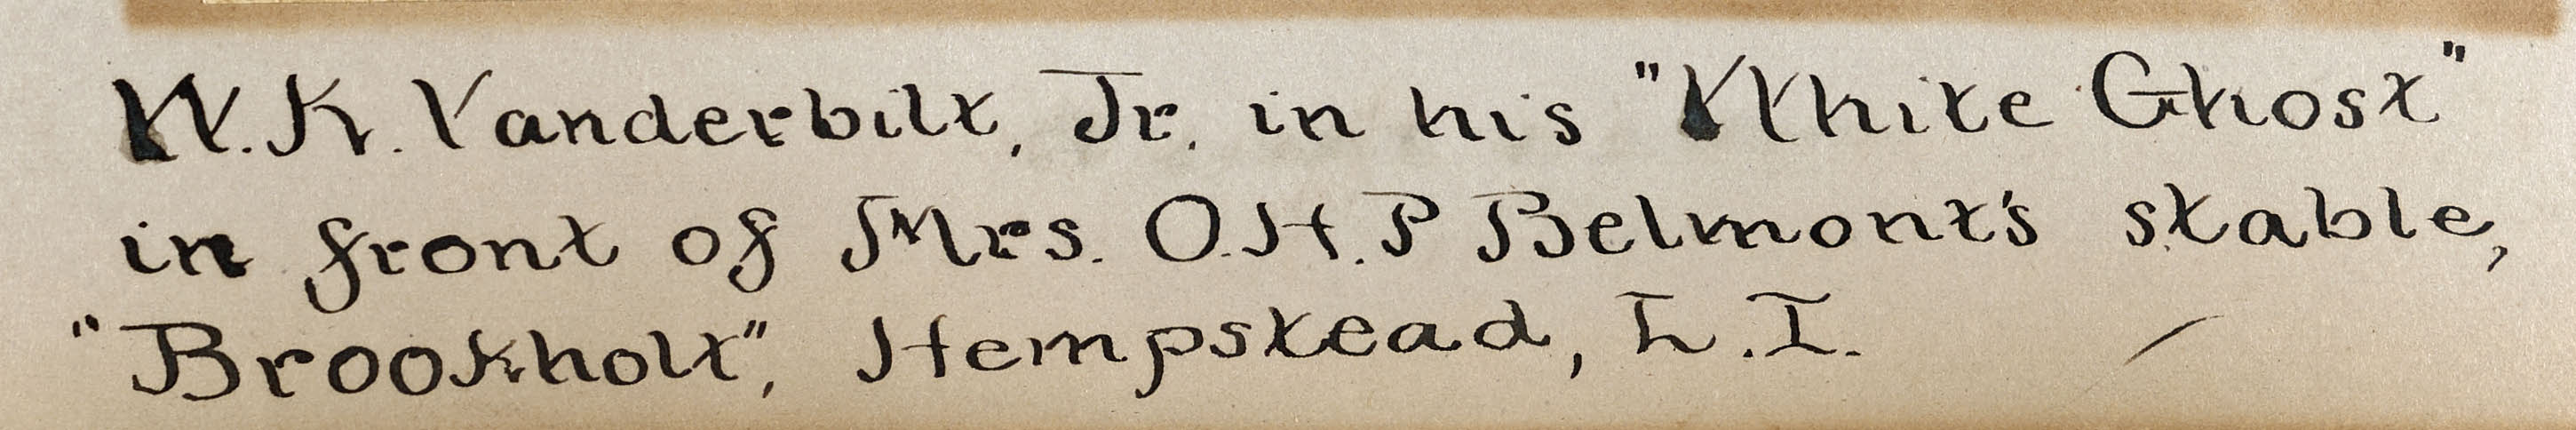 W. K. Vanderbilt, Jr. in his "White Ghost"
in front of Mrs. O. H. P Belmont's stable,
"Brookholt", Hempstead, L. I.